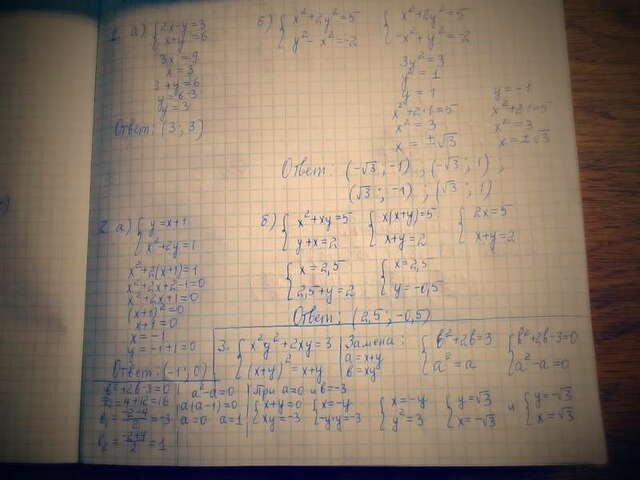 1. а) { 2x-y=3
x+y=6
3x=9
x=3
3+y=6
y=6-3
y=3
Ответ: (3; 3)
б) { x²+2y²=5
y²-x²=-2
{ x²+2y²=5
-x²+y²=-2
3y²=3
y²=1
y=1
x²+2·1=5
x²=3
x=±√3
y=-1
x²+2·1=5
x²=3
x=±√3
Ответ: (-√3; -1), (-√3; 1);
(√3; -1); (√3; 1)
2. а) { y=x+1
x²+2y=1
x²+2(x+1)=1
x²+2x+2-1=0
x²+2x+1=0
(x+1)²=0
x+1=0
x=-1
y=-1+1=0
Ответ: (-1; 0)
б) { x²+xy=5
y+x=2
{ x(x+y)=5
x+y=2
{ 2x=5
x+y=2
{ x=2,5
2,5+y=2
{ x=2,5
y=-0,5
Ответ: (2,5; -0,5)
3. { x²y²+2xy=3
(x+y)²=x+y
Замена:
a=x+y
в=xy
{ в²+2в=3
a²=a
{ в²+2в-3=0
a²-a=0
в²+2в-3=0
=4+12=16
в₁=(-2-4)/2=-3
в₂=(-2+4)/2=1
a²-a=0
a(a-1)=0
a=0 a=1
При a=0 и в=-3
{ x+y=0
xy=-3
{ x=-y
-y·y=-3
{ x=-y
y²=3
{ y=√3
x=-√3
и { y=-√3
x=√3